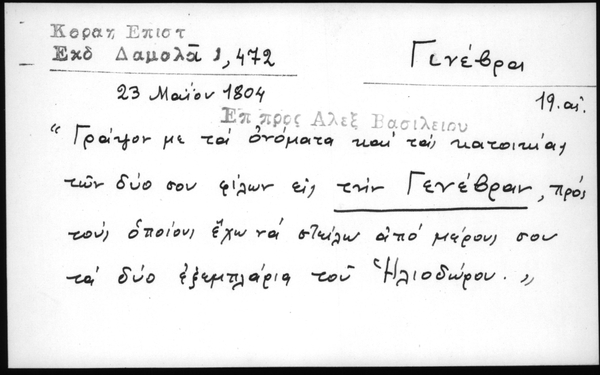 Κοραη Επιστ
Εκδ Δαμαλᾶ 1, 472
Γενέβρα
23 Μαΐου 1804
19. αἰ.
Επ προς Αλεξ Βασιλειου
“Γράψον με τά ὀνόματα καί τάς κατοικίας
τῶν δύο σου φίλων εἰς τήν Γενέβραν, πρός
τούς ὁποίους ἔχω νά στείλω ἀπό μέρους σου
τά δύο ἐξεμπλάρια τοῦ Ἡλιοδώρου.„